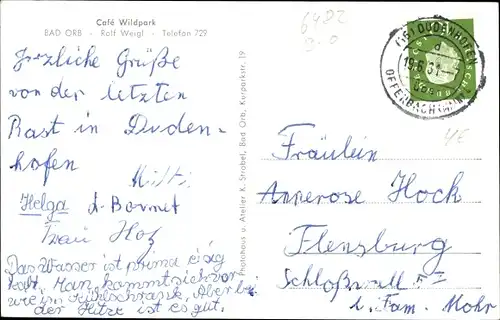 Café Wildpark
BAD ORB - Rolf Weigl - Telefon 729
6482
Herzliche Grüße
von der letzten
Rast in Duden-
hofen
Helga
Frau Hoz
Das Wasser ist prima eisig
kalt. Man kommt sich vor
wie im Kühlschrank. Aber bei
der Hitze ist es gut.
Photohaus u. Atelier K. Strobel, Bad Orb, Kurparkstr. 19
(16) DUDENHOFEN
OFFENBACH (MAIN)
Fräulein
Annerose Hoch
Flensburg
Schloßwall
i. Fam. Mohr